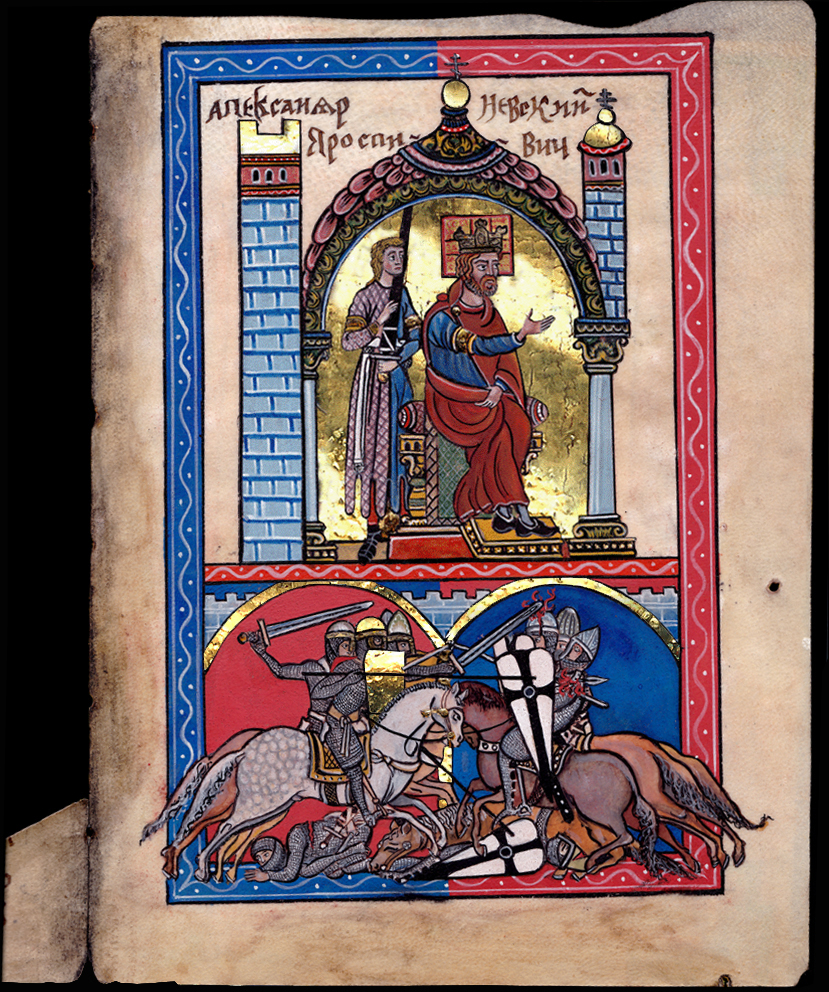 Александр Невский
Яросла- - вич